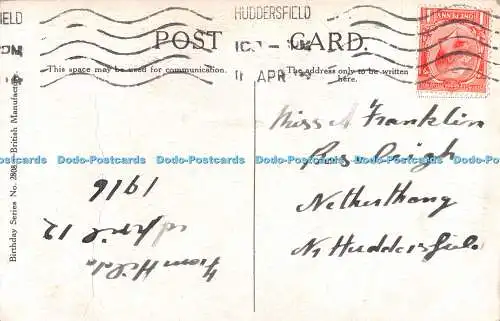 IELD HUDDERSFIELD
11 APR
POST CARD.
This space may be used for communication.
The address only to be written
here.
Birthday Series No. 2808
British Manufacture
Miss A Franklin
Netherthong
Nr Huddersfield
From Hilda
April 12
1916
Dodo-Postcards Dodo-Postcards Dodo-Postcards Dodo-Postcards Dodo-Postcards Dodo-Postcards